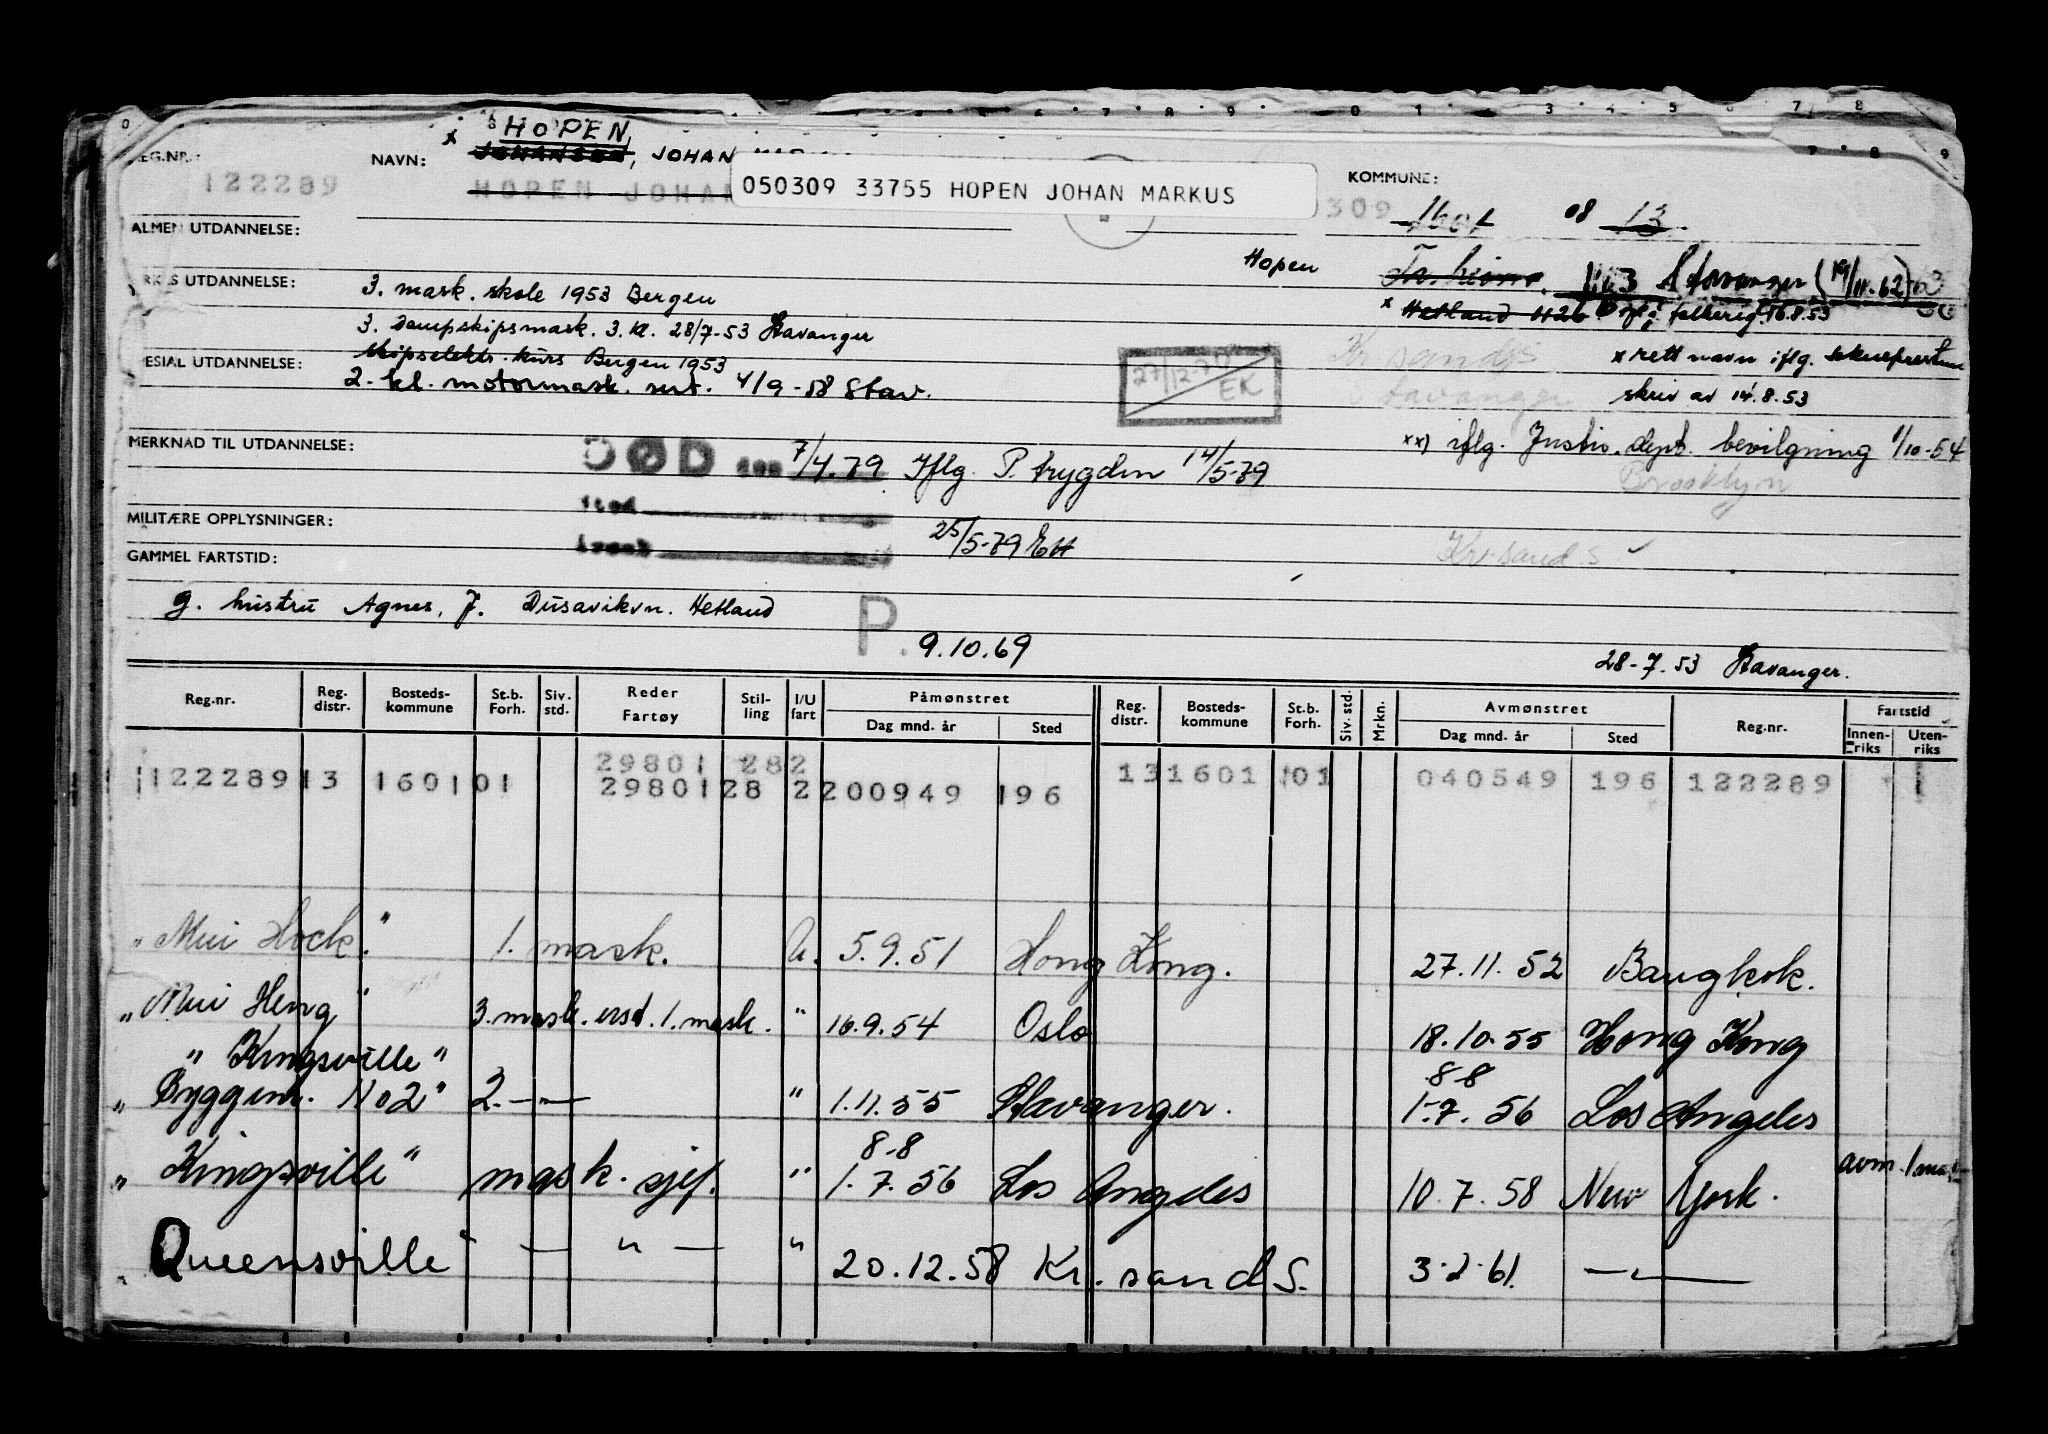 REG.NR.: 122289
NAVN: x HOPEN,
JOHANSEN, JOHAN
HOPEN JOHAN
050309 33755 HOPEN JOHAN MARKUS
309
KOMMUNE:
1601 08 13
ALMEN UTDANNELSE:
Hopen Tr.heim. 1103 Stavanger (19/11-62)
YRKES UTDANNELSE:
3. mask. skole 1953 Bergen
x Hetland 1126 iflg. folkereg. 16.8.53
3. Dampskipsmask. 3. kl. 28/7-53 Stavanger
Kr sand S
x rett navn iflg. sokneprestens
SPESIAL UTDANNELSE:
Skipselektr. kurs Bergen 1953
2. kl. motormask. sert. 4/9-58 Stav.
27/12-70
EK
Stavanger
skriv av 14.8.53
MERKNAD TIL UTDANNELSE:
DØD den 7/4.79 Iflg P. trygden 14/5-79
xx) iflg. Justis.dept. bevilgning 1/10-54
Brooklyn
sted
MILITÆRE OPPLYSNINGER:
årsak
25/5-79
Kr.sand S
GAMMEL FARTSTID:
g. hustru Agnes, J. Dusavikvn. Hetland
P. 9.10.69
28-7.53 Stavanger.
Reg.nr. Reg. distr. Bosteds-kommune St.b. Forh. Siv. std. Reder Fartøy Stil-ling I/U fart Påmønstret Dag mnd. år Sted Reg. distr. Bosteds-kommune St.b. Forh. Siv. std. Mrkn. Avmønstret Dag mnd. år Sted Reg.nr. Fartstid Innen-riks Uten-riks
29801 282
122289 13 1601 01 29801 28 2 200949 196 13 1601 01 040549 196 122289
"Mui Hock." 1. mask. U. 5.9.51 Hong Kong. 27.11.52 Bangkok.
"Mui Heng" 3. mask. ersd. 1. mask. " 16.9.54 Oslo 18.10.55 Hong Kong
"Kingsville"
8-8
"Byggenr. No 2" 2. —"— " 1.11.55 Stavanger. 1.7.56 Los Angeles
8-8
"Kingsville" mask. sjef. " 1.7.56 Los Angeles 10.7.58 New York. avm. 1 mask
"Queensville" —"— " 20.12.58 Kr.sand S. 3.2.61. —"—